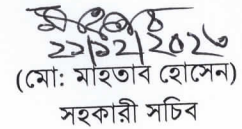 ২২/১২/২০২৩
(মো: মাহতাব হোসেন)
সহকারী সচিব